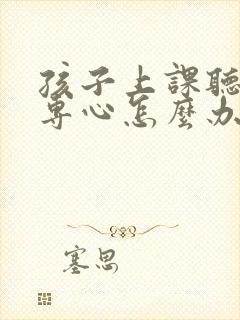 孩子上課聽
專心怎麼办
塞思